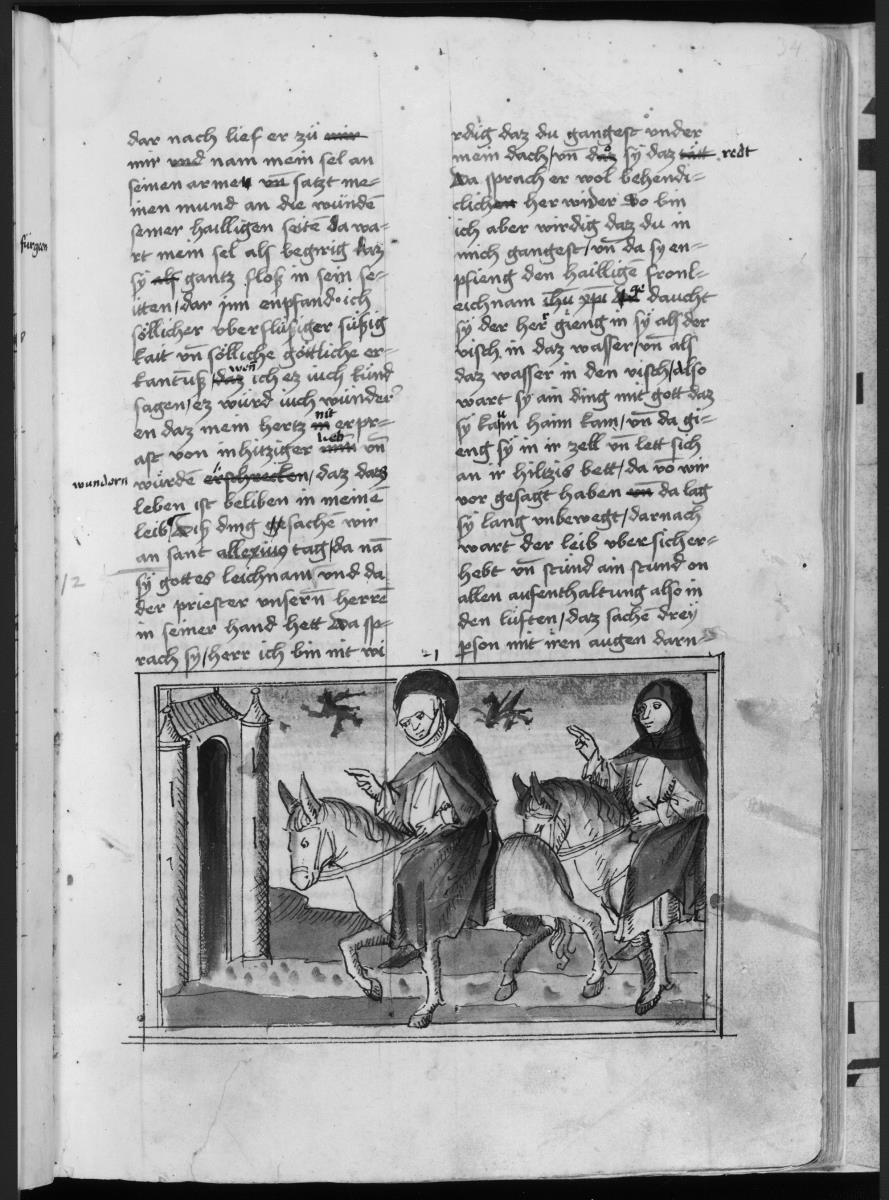 34
dar nach lief er zů mir
mir vnd nam mein sel an
seinen armen vñ satzt me-
inen mund an die wündē
seiner hailligen seitē da wa-
rt mein sel als begirig daz
fürgieng
sy als gantz floß in sein se-
itten / dar jnn enpfand ich
söllicher vberflüßiger süßig
kait vñ sölliche göttliche er-
wen
kantnuß / daz ich ez iuch künd
sagen / ez würd iuch wunder
nit
en daz mein hertz in erpr-
lieb
ast von inhitziger min vñ
wundern würden erschrecken / daz daz
leben ist beliben in meinē
leib Diß ding gesachen wir
an sant allexius tag / da nā
12
sy gottes leichnam vnd da
der priester vnsern herrē
in seiner hand hett Da sp-
rach sy / herr ich bin nit wi
rdig daz du gangest vnder
mein dach / vñ daz sy daz tätt redt
Da sprach er wol behendi-
clichen her wider wo bin
ich aber wirdig daz du in
mich gangest / vñ da sy en-
pfieng den hailligē fronl-
eichnam ihū xp̄i daucht
sy der her gieng in sy als der
visch in daz wasser / vñ als
daz wasser in den visch / also
wart sy ain ding mit gott daz
sy kaum haim kam / vñ da gi-
eng sy in ir zell vñ lett sich
an ir hiltzis bett / da vō wir
vor gesagt haben vñ da lag
sy lang vnbewegt / darnach
wart der leib vbersicher-
hebt vñ stund ain stund on
allen aufenthaltung also in
den lüften / daz sachē dreÿ
pson mit iren augen darn-
21